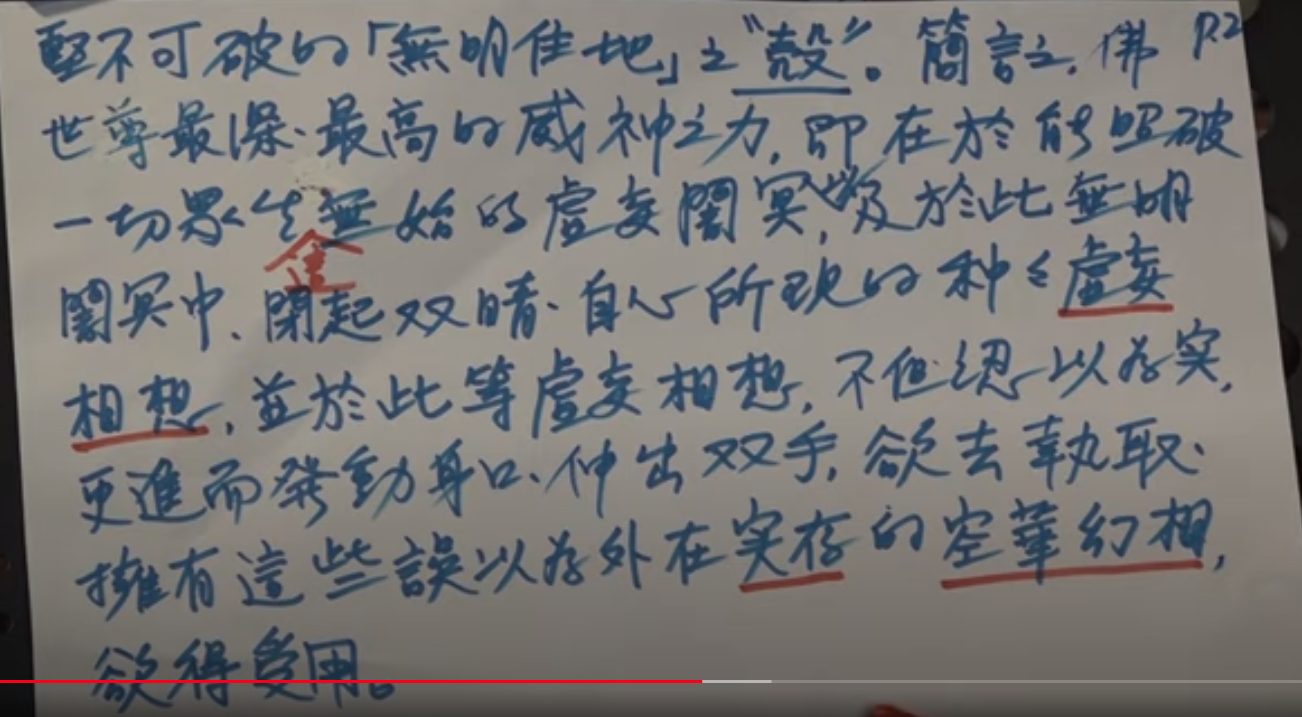 堅不可破的「無明住地」之“殼”。簡言之,佛 P.2
世尊最深、最高的威神之力,即在於能照破
一切眾生無始的虛妄闇冥,以及於此無明
闇冥中、閉起双睛、自心所現的种〻虛妄
相想,並於此等虛妄相想,不但認以為实,
更進而發動身口、伸出双手,欲去執取、
擁有這些誤以為外在实存的空華幻相,
欲得受用。